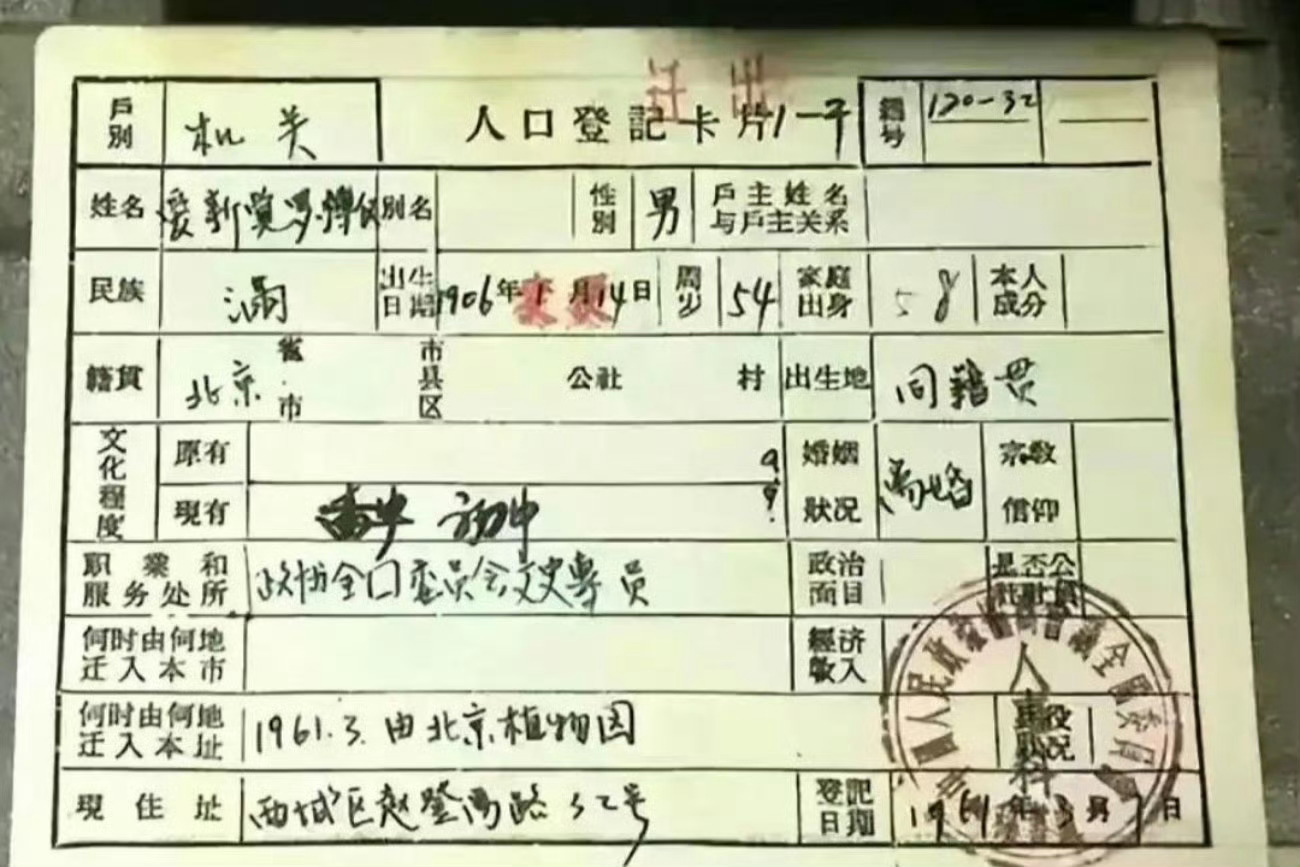 迁出
戶別 机关 人口登記卡片 1-子 編号 120-32
姓名 爱新觉罗·溥仪 別名 性別 男 戶主姓名与戶主关系
民族 满 出生日期 1906年 月14日 周岁 54 家庭出身 58 本人成分
籍貫 北京 省市 市县区 公社 村 出生地 同籍贯
文化程度 原有 婚姻狀况 离婚 宗教信仰
現有 初中
职業和服务处所 政协全囗委员会文史專员 政治面目 是否公社社員
何时由何地迁入本市 經济收入
何时由何地迁入本址 1961.3.由北京植物园 兵役狀况
現住址 西城区赵登禹路32号 登記日期 1961年3月7日
人事科